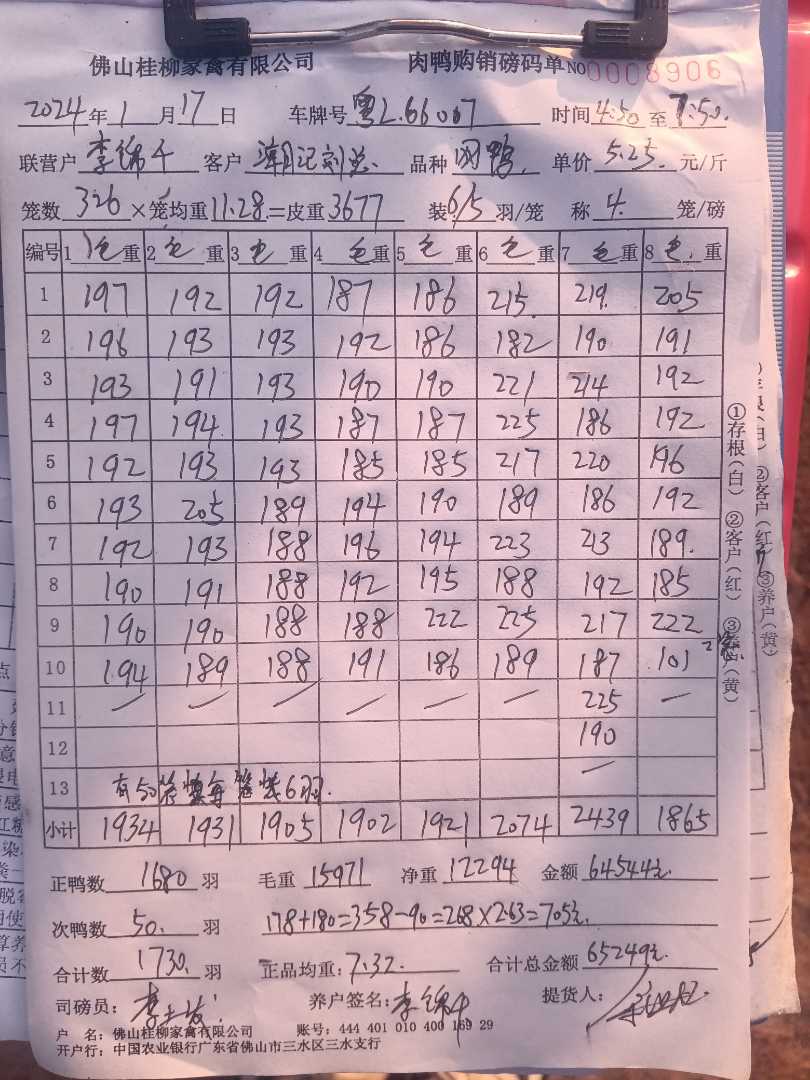 佛山桂柳家禽有限公司 肉鸭购销磅码单 No 0008906
2024年1月17日 车牌号 粤L.66007 时间 4:50 至 7:50.
联营户 李锦千 客户 潮记刘总. 品种 肉鸭. 单价 5.25. 元/斤
笼数 326 ×笼均重 11.28.=皮重 3677 装 6/5 羽/笼 称 4. 笼/磅
编号 1 毛重 2 毛重 3 毛重 4 毛重 5 毛重 6 毛重 7 毛重 8 毛.重
1 197 192 192 187 186 215. 219. 205
2 196 193 193 192 186 182 190 191
3 193 191 193 190 190 221 214 192
4 197 194 193 187 187 225 186 192
5 192 193 193 185 185 217 220 196
6 193 205 189 194 190 189 186 192
7 192 193 188 196 194 223 213 189.
8 190 191 188 192 195 188 192 185
9 190 190 188 188 222 225 217 222
10 194 189 188 191 186 189 187 101
11 — — — — — — 225 —
12 190
13 有50笼 每笼装6羽. —
小计 1934 1931 1905 1902 1921 2074 2439 1865
正鸭数 1680 羽 毛重 15971 净重 12294 金额 64544元.
次鸭数 50. 羽 178+180=358-90=268×2.63=705元.
合计数 1730. 羽 正品均重: 7.32. 合计总金额 65249元.
司磅员: 养户签名: 提货人:
户 名: 佛山桂柳家禽有限公司 账号: 444 401 010 400 169 29
开户行: 中国农业银行广东省佛山市三水区三水支行
①存根(白) ②客户(红) ③养户(黄)
②客户(红) ③养户(黄)